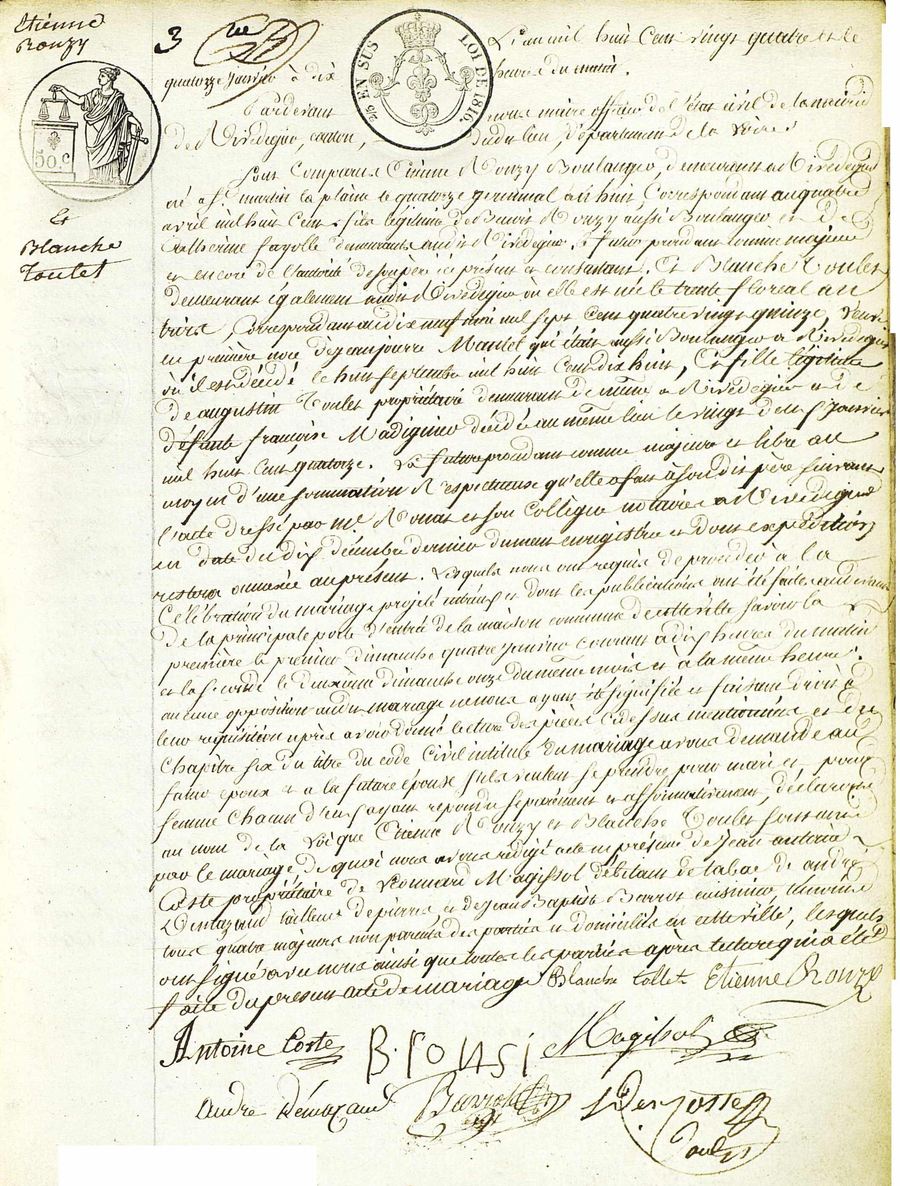 Etienne
Ronzy
3
25 EN SUS LOI DE 1816.
50 c
Et
Blanche
Toulet
L'an mil huit Cent vingt quatre et le
quatorze Janvier à dix heures du matin.
Pardevant nous maire officier de l'état civil de la mairie
de Rivedegier, canton, dudit lieu, département de la Loire.
Sont Comparus Etienne Ronzy Boulanger, demeurant à Rivedegier
né à St martin la plaine le quatorze germinal an huit, Correspondant au quatre
avril mil huit Cent, fils légitime de Benoit Ronzy aussi Boulanger et de
Catherine fayolle demeurants audit Rivedegier. le futur procedant comme majeur
et encore de l'autorité de son père ici présent et consentant. Et Blanche Toulet
demeurant également audit Rivedegier où elle est née le trente floreal an
trois, Correspondant au dix neuf mai mil sept Cent quatre vingt quinze, veuve
en première noce de jean pierre Mantel qui était aussi Boulanger à Rivedegier
où il est décédé le huit Septembre mil huit Cent dix huit, Et fille légitime
de augustin Toulet propriétaire demeurant de même à Rivedegier et de
défunte françoise Madignier décédée au même lieu le vingt deux Janvier
mil huit Cent quatorze. La future procedant comme majeure et libre au
moyen d'une sommation Respectueuse qu'elle a fait à son dit père suivant
l'acte dressé par me et son Collègue notaires à Rivedegier
en date du dix décembre dernier dument enregistré et dont expédition
restera annexée au présent. Lesquels nous ont requis de proceder à la
Célébration du mariage projeté entr'eux et dont les publications ont été faites audevant
de la principale porte d'entrée de la maison commune de cette ville savoir la
première le premier dimanche quatre janvier courant à dix heures du matin
et la seconde le deuxième dimanche onze du même mois et à la même heure.
aucune opposition audit mariage ne nous ayant été signifiée et faisant droit à
leur requisition après avoir donné lecture des pièces ci dessus mentionnées et du
Chapitre six du titre du code Civil intitulé Du mariage avons demandé au
futur époux et à la future épouse s'ils veulent se prendre pour mari et pour
femme Chacun d'eux ayant repondu séparément et affirmativement, déclarons
au nom de la Loi que Etienne Ronzy et Blanche Toulet sont unis
par le mariage de quoi nous avons rédigé acte en présence de Jean antoine
Coste propriétaire de Léonnard Magissol débitant de tabac de andré
tailleur de pierres et de Jean Baptiste Barrot
tous quatre majeurs non parents des parties et domiciliés en cette ville, lesquels
ont signé avec nous ainsi que toutes les parties après lecture qui a été
faite du présent acte de mariage. Blanche tollet Etienne Ronzy
Antoine Coste B. ronsi Magissol
andre Barrot